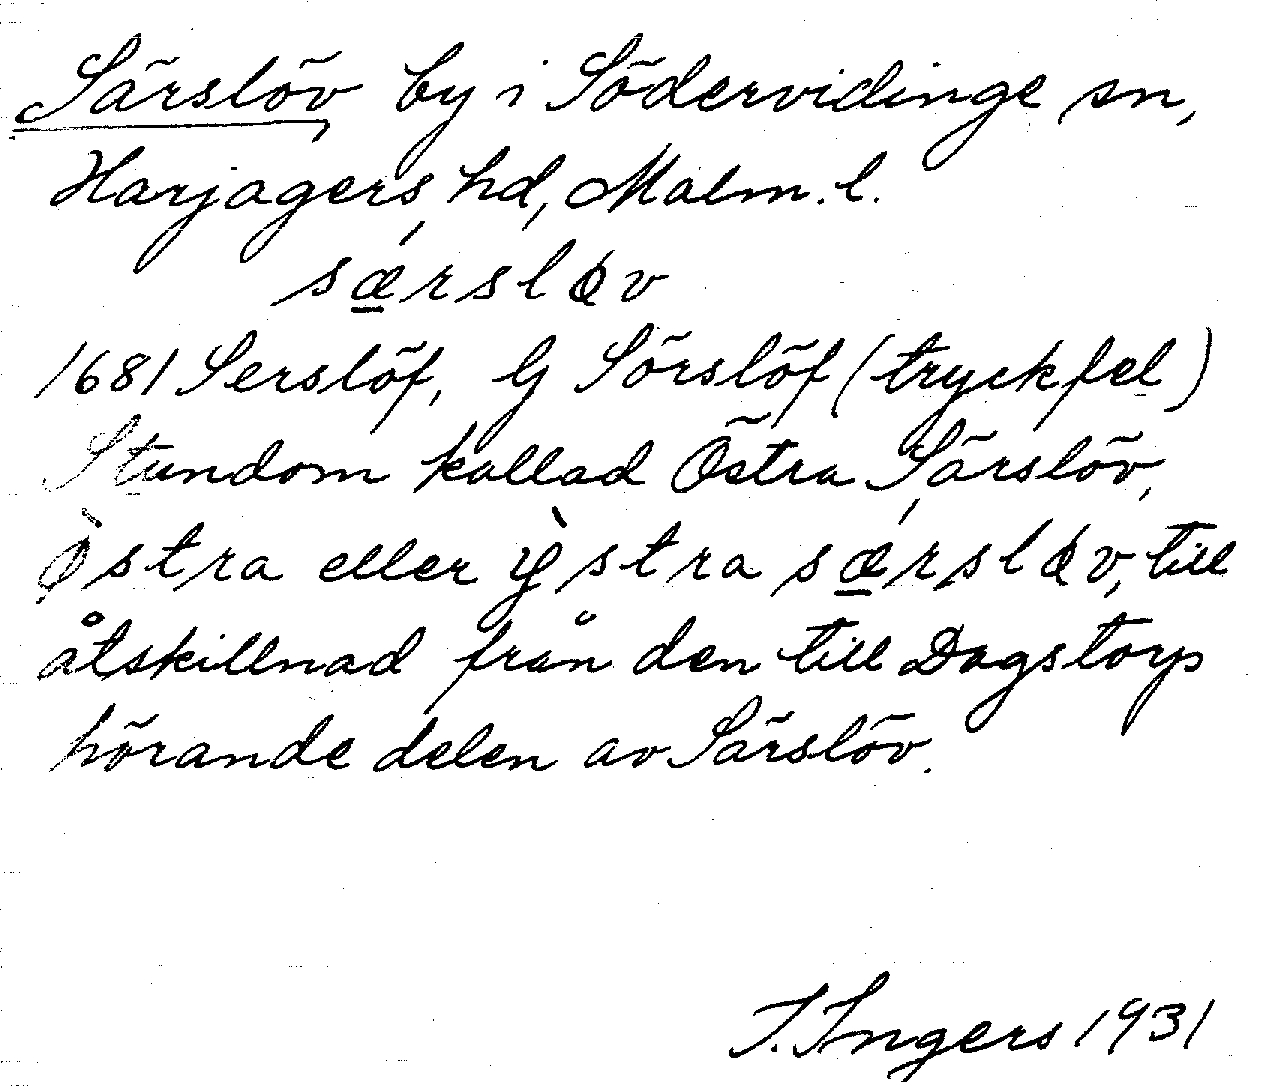 Särslöv by i Södervidinge sn,
Harjagers hd, Malm. l.
sǽrsløv
1681 Serslöf, G Sörslöf (tryckfel)
Stundom kallad Östra Särslöv,
ø̀stra eller ỳstra sǽrsløv, till
åtskillnad från den till Dagstorp
hörande delen av Särslöv.
I. Ingers 1931